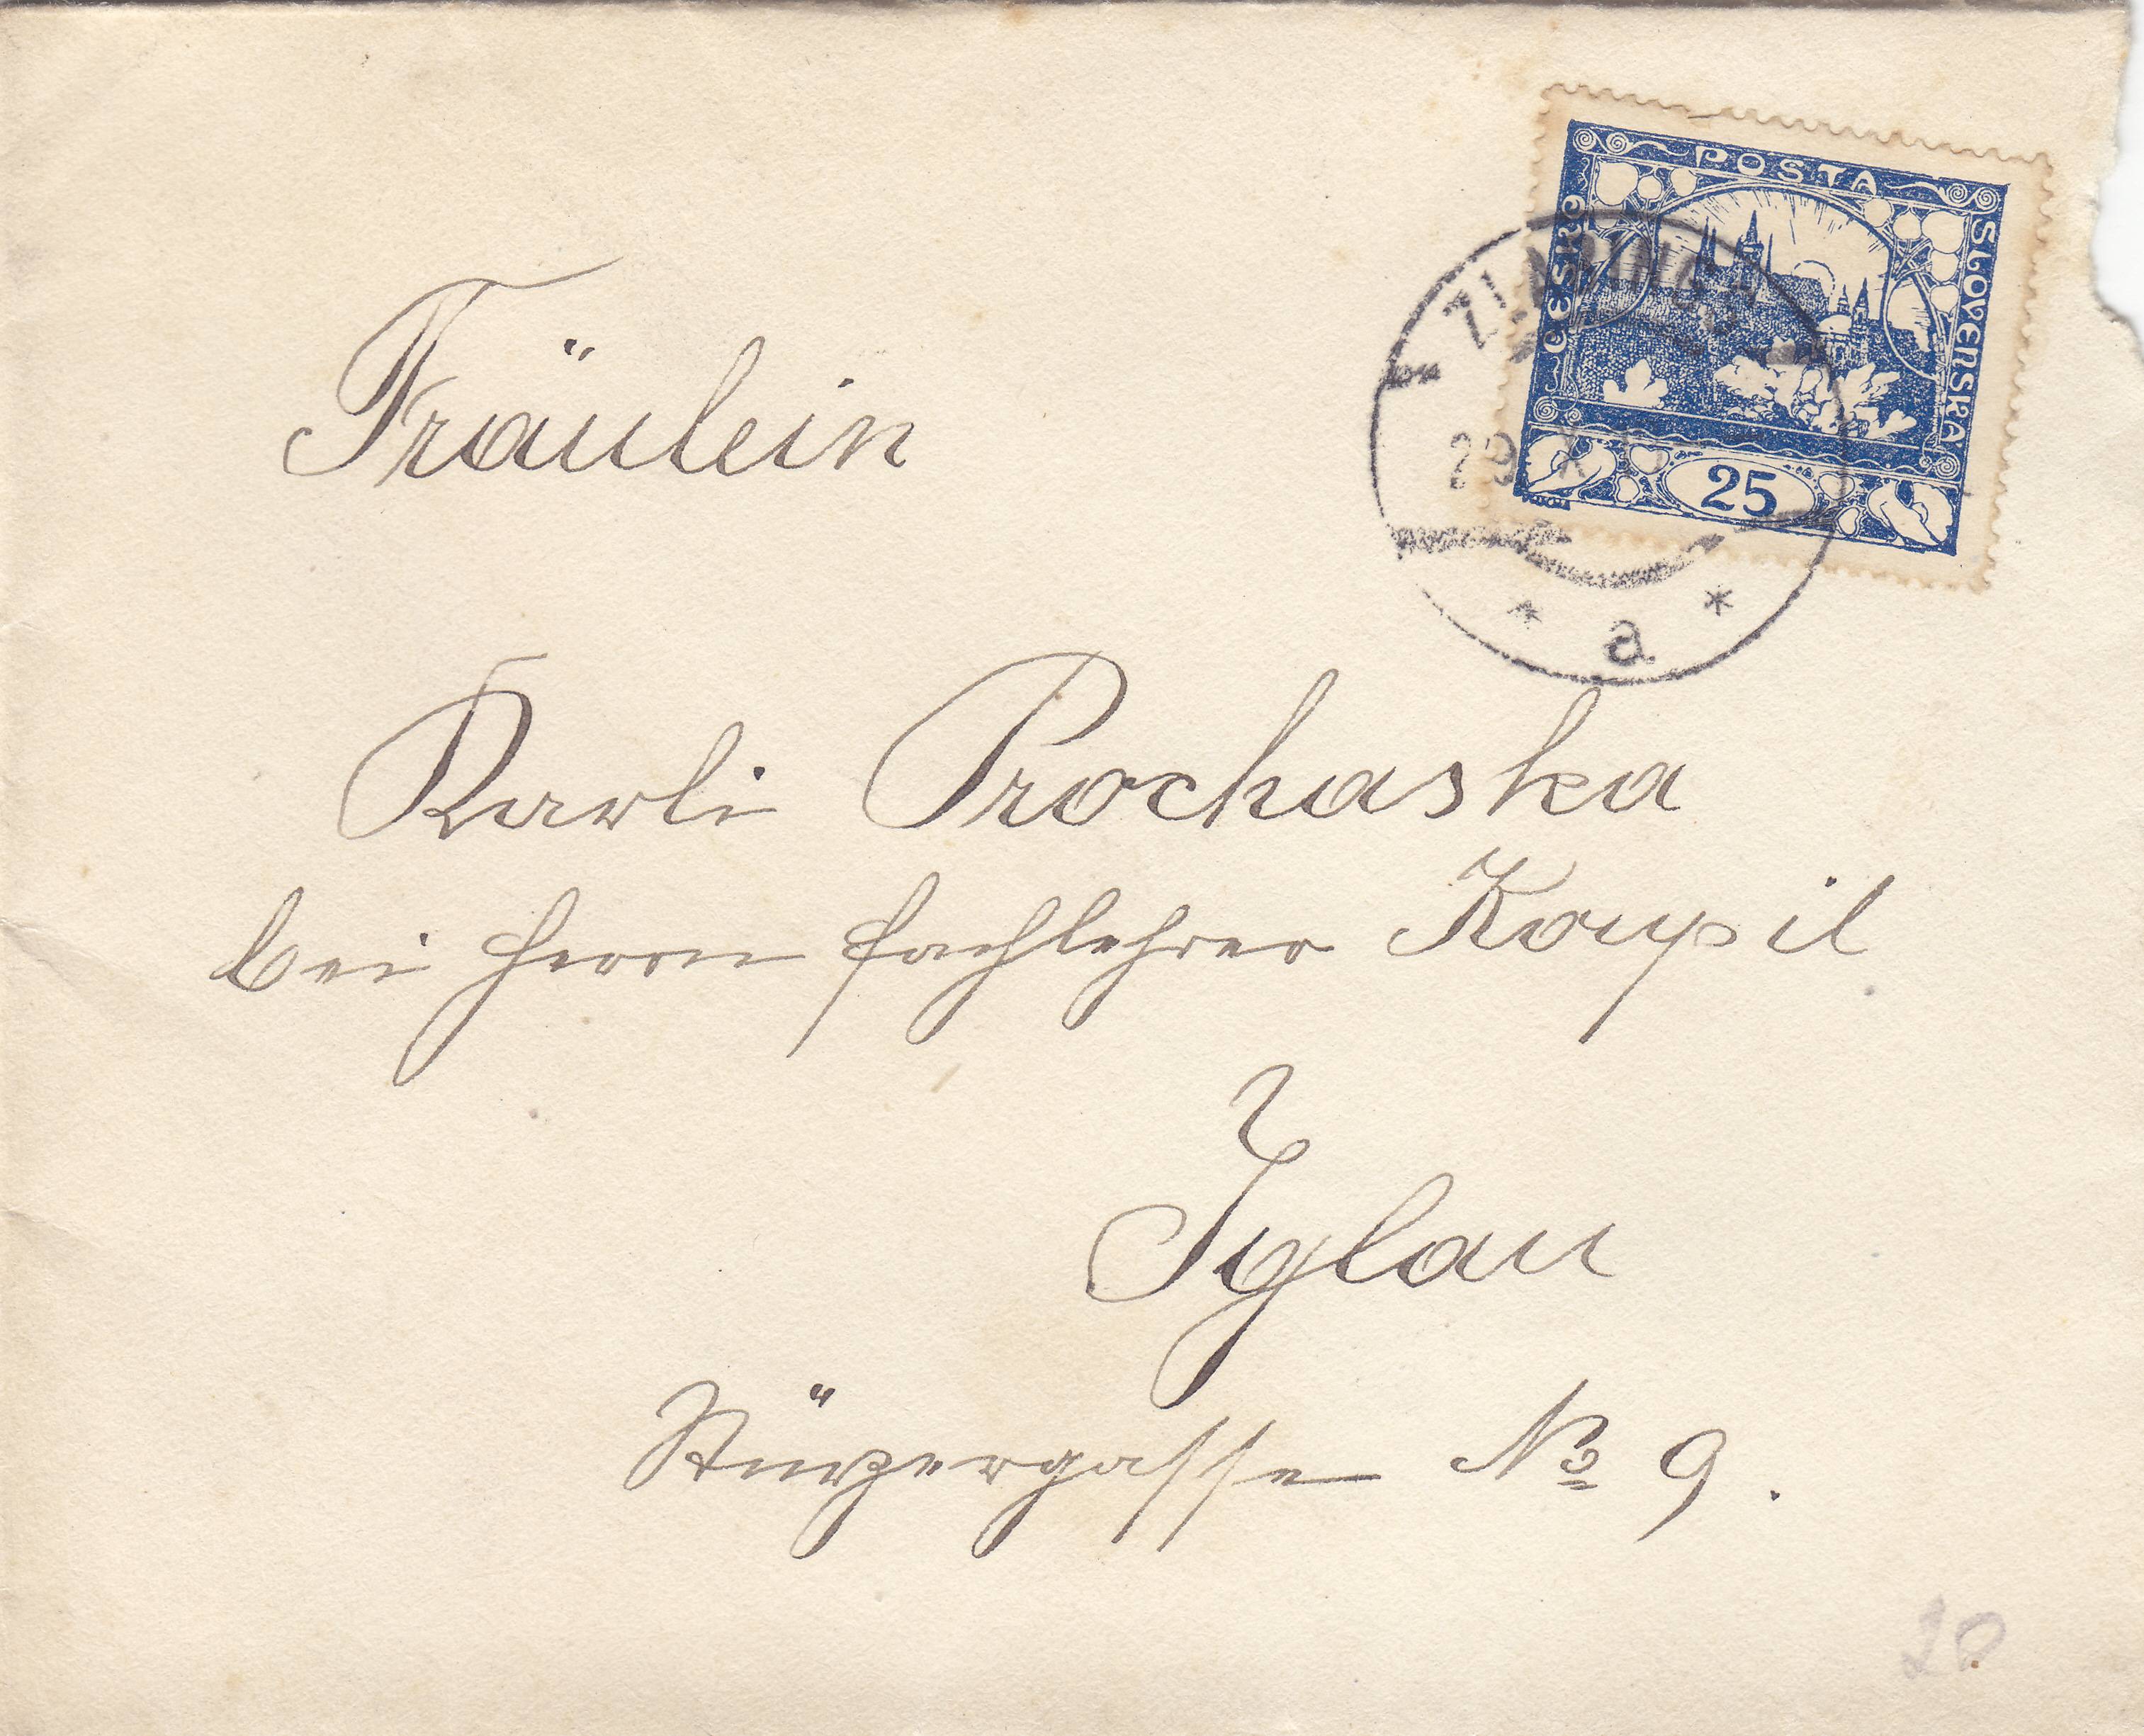 POSTA
ČESKO
SLOVENSKÁ
25
29 X
* a *
Fräulein
Karli Prochaska
bei Herrn Fachlehrer Koupil
Iglau
Stürzergasse No 9.
20